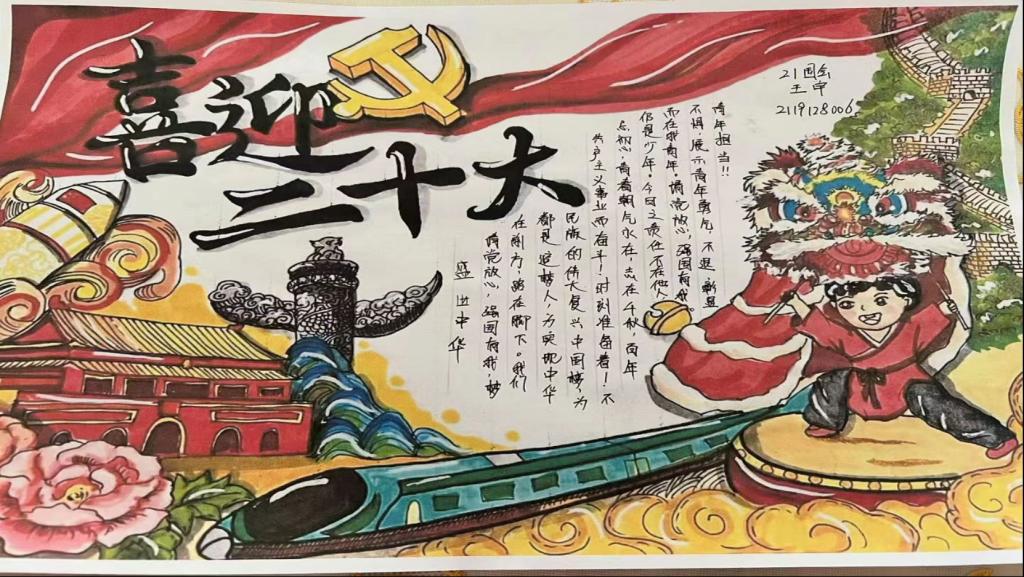 喜迎
二十大
21国会
王
2119128006
盛世中华
请党放心,强国有我,梦
在前方,路在脚下。我们
都是追梦人,为实现中华
民族的伟大复兴中国梦,为
共产主义事业而奋斗!时刻准备着!不
忘初心,青春朝气永在,志在千秋,百年
仍是少年。今日之责任不在他
而在我青年。请党放心,强国有我。
不惧,展示青年勇气,不退,彰显
青年担当!!